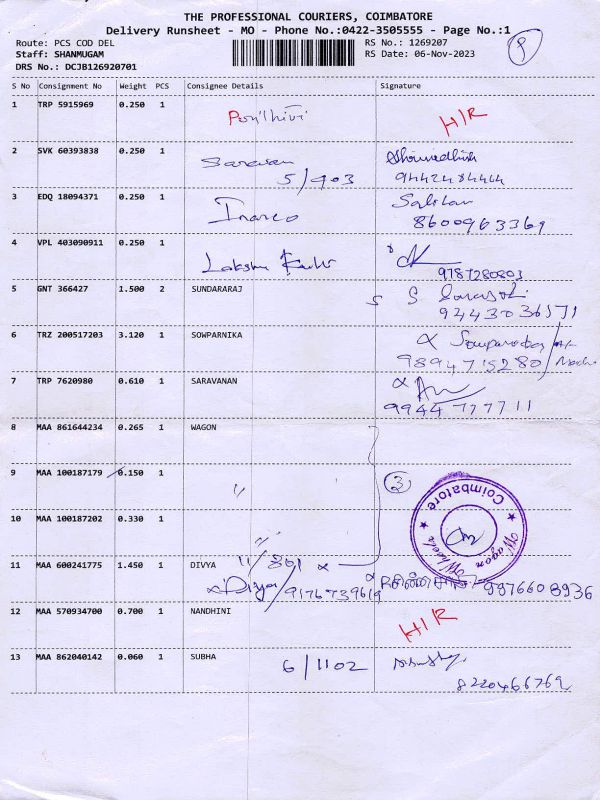 THE PROFESSIONAL COURIERS, COIMBATORE
Delivery Runsheet - MO - Phone No.:0422-3505555 - Page No.:1
Route: PCS COD DEL RS No.: 1269207
Staff: SHANMUGAM RS Date: 06-Nov-2023
DRS No.: DCJB126920701
S No Consignment No Weight PCS Consignee Details Signature
1 TRP 5915969 0.250 1 H/R
2 SVK 60393838 0.250 1 Saravan
5/403 9442484464
3 EDQ 18094371 0.250 1
8600963369
4 VPL 403090911 0.250 1 Lakshmi
9787280803
5 GNT 366427 1.500 2 SUNDARARAJ S
9443036571
6 TRZ 200517203 3.120 1 SOWPARNIKA
9894715280
7 TRP 7620980 0.610 1 SARAVANAN
9944777711
8 MAA 861644234 0.265 1 WAGON
9 MAA 100187179 0.150 1 " 3
Wagon Wheels Coimbatore
10 MAA 100187202 0.330 1
11 MAA 600241775 1.450 1 DIVYA 11/801
Divya/9176739619 9976608936
12 MAA 570934700 0.700 1 NANDHINI H/R
13 MAA 862040142 0.060 1 SUBHA 6/1102
8220466769